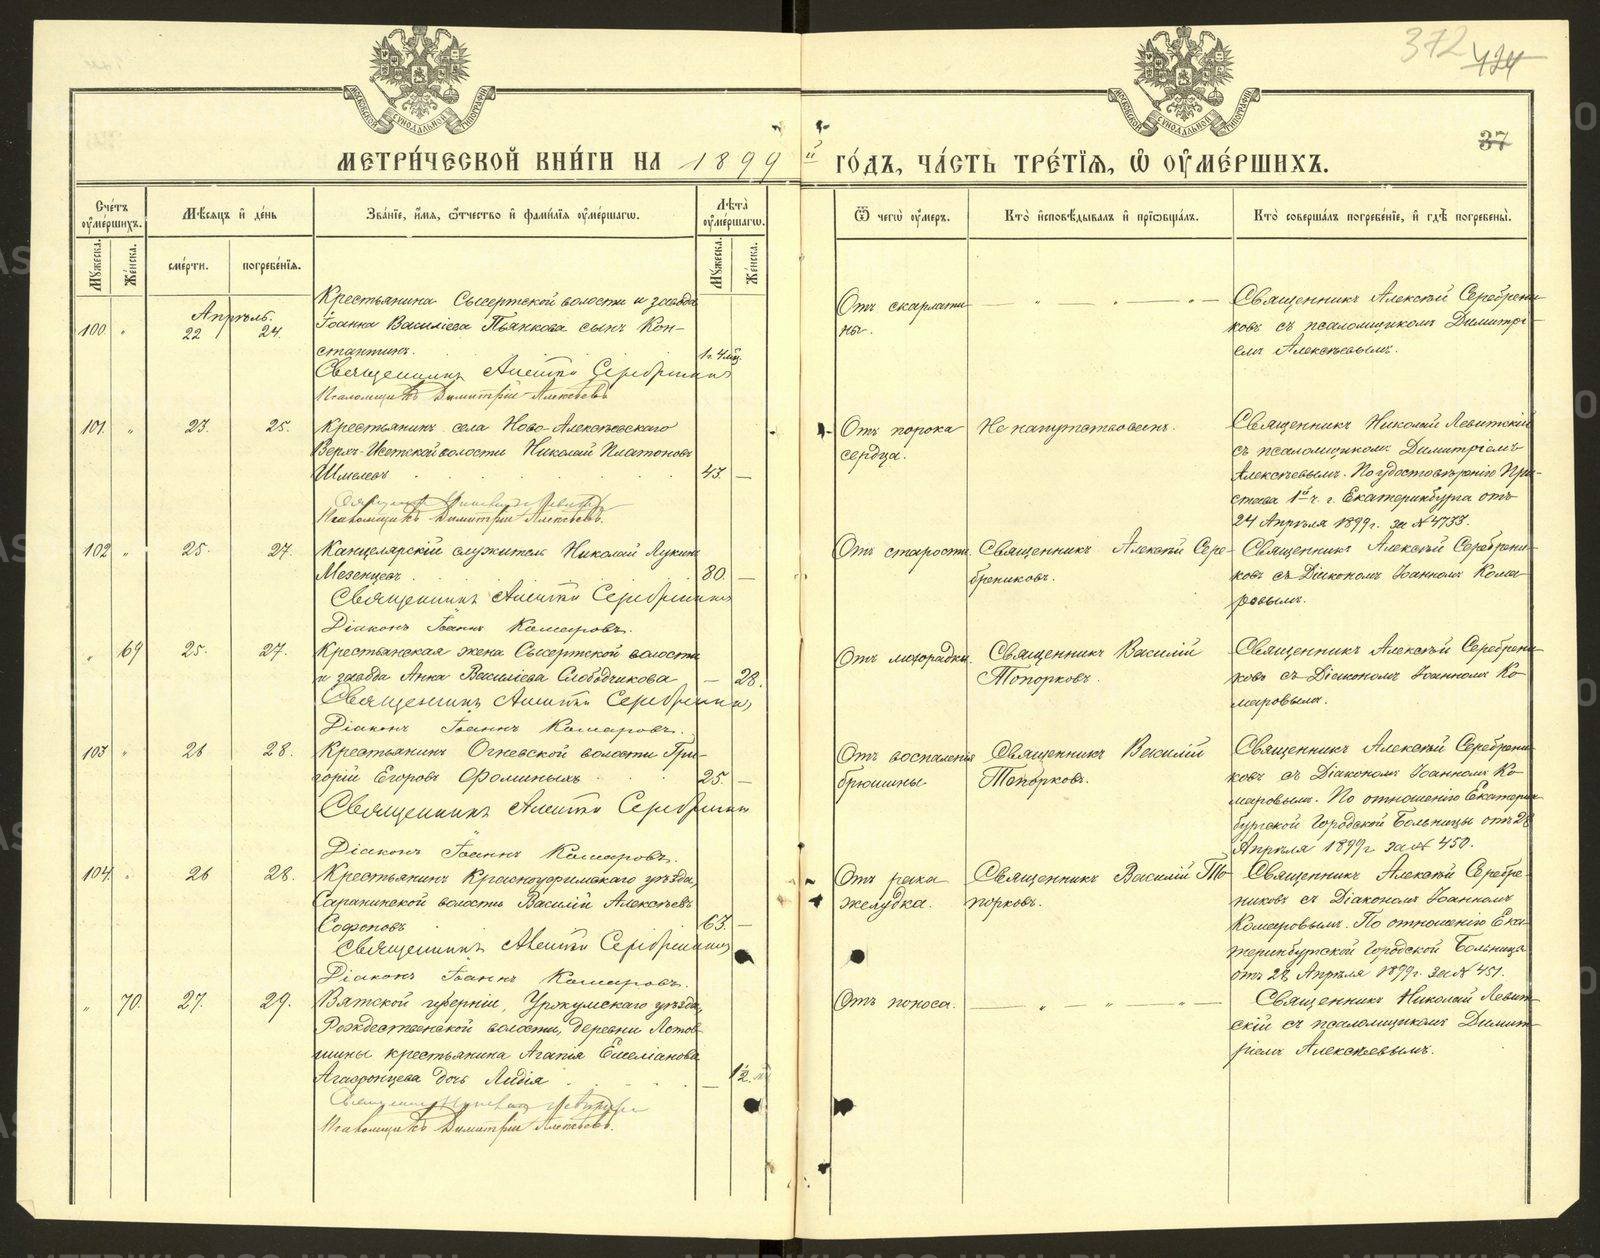 372 424
37
МОСКОВСКОЙ СѴНОДАЛЬНОЙ ТИПОГРАФІИ
МОСКОВСКОЙ СѴНОДАЛЬНОЙ ТИПОГРАФІИ
МЕТРИ́ЧЕСКОЙ КНИ́ГИ НА 1899 й ГО́ДЪ, ЧА́СТЬ ТРЕ́ТЇѦ, Ѡ҆ ОУ҆МЕ́РШИХЪ.
Сче́тъ оу҆ме́ршихъ.
Мꙋ́жеска. Же́нска.
Мѣ́сѧцъ и҆ де́нь
сме́рти. погребе́нїѧ.
Зва́нїе, и҆́мѧ, ѻ҆́тчество и҆ фамѵ́лїѧ оу҆ме́ршагѡ.
Лѣ́та̀ оу҆ме́ршагѡ.
Мꙋ́жеска. Же́нска.
Ѿ чегѡ̀ оу҆́меръ.
Кто̀ и҆сповѣ́дывалъ и҆ прїѡбща́лъ.
Кто̀ соверша́лъ погребе́нїе, и҆ гдѣ̀ погребены̀.
Апрѣль.
100 " 22 24
Крестьянина Сысертской волости и завода
Іоанна Василіева Пьянкова сынъ Кон-
стантинъ. 1 г. 4 мѣс.
Священникъ Алексѣй Серебрениковъ
Псаломщикъ Димитрій Алексѣевъ
Отъ скарлати-
ны.
— " — " — " —
Священникъ Алексѣй Серебрени-
ковъ съ псаломщикомъ Димитрі-
емъ Алексѣевымъ.
101. " 23. 25.
Крестьянинъ села Ново-Алексѣевскаго
Верхъ-Исетской волости Николай Платоновъ
Шмелевъ 43. —
Священникъ Николай Левитскій
Псаломщикъ Димитрій Алексѣевъ.
Отъ порока
сердца.
Не напутствованъ.
Священникъ Николай Левитскій
съ псаломщикомъ Димитріемъ
Алексѣевымъ. По удостовѣренію При-
става 1й ч. г. Екатеринбурга отъ
24 Апрѣля 1899 г. за № 4733.
102 " 25. 27.
Канцелярскій служитель Николай Лукинъ
Мезенцевъ 80. —
Священникъ Алексѣй Серебрениковъ
Діаконъ Іоаннъ Комаровъ.
Отъ старости.
Священникъ Алексѣй Сере-
брениковъ.
Священникъ Алексѣй Серебрени-
ковъ съ Діакономъ Іоанномъ Кома-
ровымъ.
" 69 25. 27.
Крестьянская жена Сысертской волости
и завода Анна Василіева Слободчикова — 28.
Священникъ Алексѣй Серебрениковъ
Діаконъ Іоаннъ Комаровъ.
Отъ лихорадки.
Священникъ Василій
Топорковъ.
Священникъ Алексѣй Серебрени-
ковъ съ Діакономъ Іоанномъ Ко-
маровымъ.
103 " 26 28.
Крестьянинъ Огневской волости Гри-
горій Егоровъ Ѳоминыхъ 25. —
Священникъ Алексѣй Серебрениковъ
Діаконъ Іоаннъ Комаровъ.
Отъ воспаленія
брюшины
Священникъ Василій
Топорковъ.
Священникъ Алексѣй Серебрени-
ковъ съ Діакономъ Іоанномъ Ко-
маровымъ. По отношенію Екатерин-
бургской Городской Больницы отъ 28
Апрѣля 1899 г за № 450.
104. " 26 28.
Крестьянинъ Красноуфимскаго уѣзда,
Саранинской волости Василій Алексѣевъ
Софоновъ 63. —
Священникъ Алексѣй Серебрениковъ
Діаконъ Іоаннъ Комаровъ.
Отъ рака
желудка.
Священникъ Василій То-
порковъ.
Священникъ Алексѣй Серебре-
никовъ съ Діакономъ Іоанномъ
Комаровымъ. По отношенію Ека-
теринбургской Городской Больницы
отъ 28 Апрѣля 1899 г. за № 451.
" 70. 27. 29.
Вятской губерніи, Уржумскаго уѣзда,
Рождественской волости, деревни Лотов-
щины крестьянина Агапія Емеліанова
Агафонцева дочь Лидія — 1½
Священникъ Николай Левитскій
Псаломщикъ Димитрій Алексѣевъ.
Отъ поноса.
— " — " — " —
Священникъ Николай Левит-
скій съ псаломщикомъ Димит-
ріемъ Алексѣевымъ.